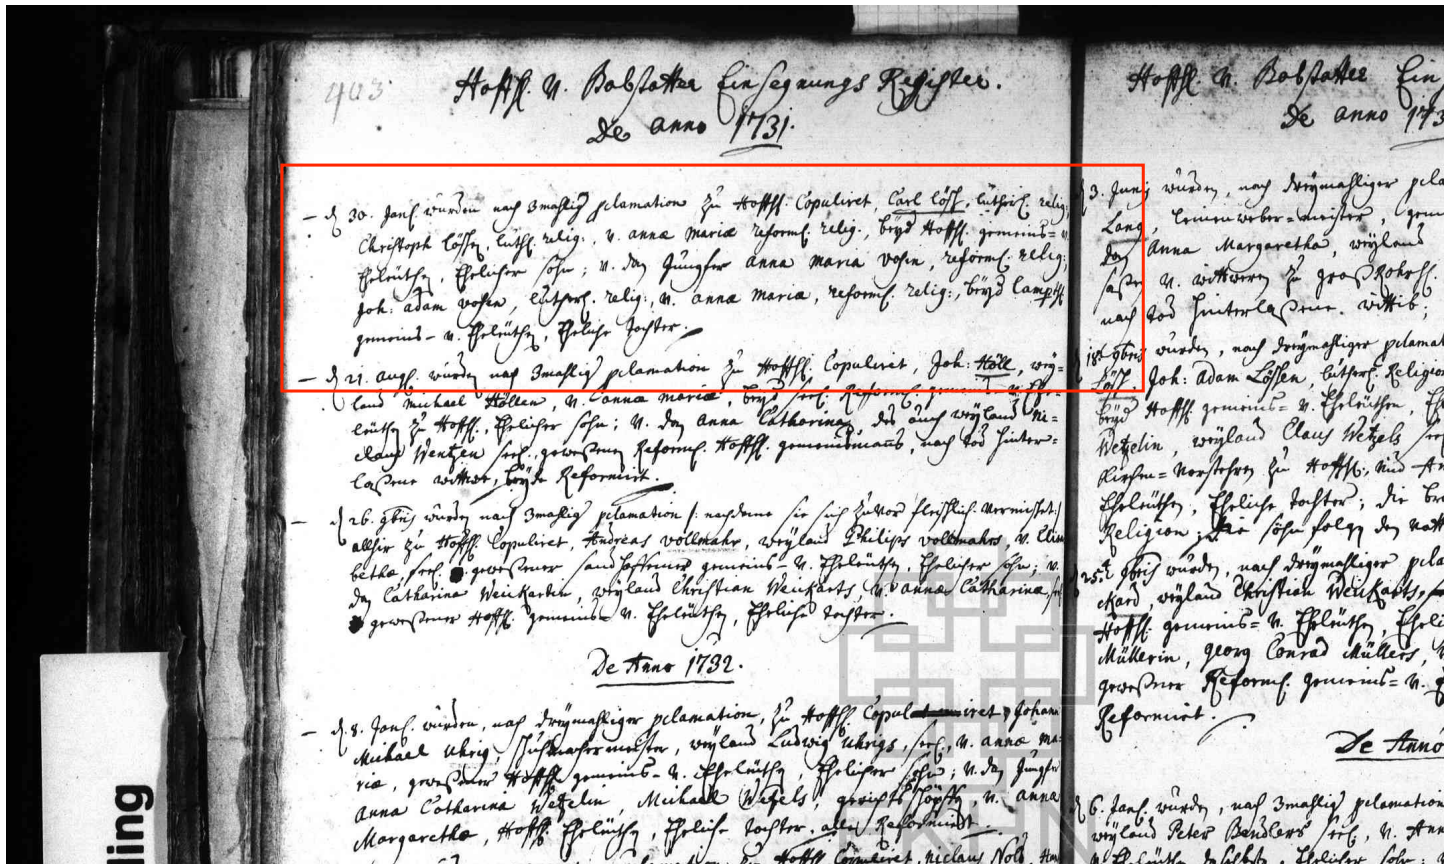 403
Hoffh. v. Bobstatter Einsegnungs Register.
De anno 1731.
– d 30. Jan. wurden nach 3mahlig pclamation zu Hoffh. Copuliret, Carl Lösch, luthrisch. relig.
Christoph Löschen, luth. relig., v. annæ mariæ reform. relig., beyd Hoffh. gemeins= v.
Eheleuthen, Ehelicher sohn; v. den Jungfer anna maria
Joh. adam luther. relig., v. annæ mariæ, reform. relig., beyd
gemeins- v. Eheleuthen, Eheliche tochter.
– d 21. wurden nach 3mahlig pclamation zu Hoffh. Copuliret, Joh. Höll, wey-
land Michael Höllen, v. annæ mariæ, beyd seel. Reform. gemeins- v. Ehe-
leuthen zu Hoffh., Ehelicher sohn; v. den Anna Catharina, des auch weyland Ni-
claus Wentzen seel. gewesenen Reform. Hoffh. gemeinsmanns, nach tod hinter-
lassene wittwe, beyde Reformirt.
– d 26. 9bris wurden nach 3mahlig pclamation /: nachdeme sie sich zuvor fleischlich vermischet :/
allhier zu Hoffh. Copuliret, Andreas vollmahr, weyland Philips vollmahrs, v. Elisa
bethæ, seel. gewesener sandhoffener gemeins- v. Eheleuthen, Ehelicher sohn; v.
den Catharina Weickartin, weyland Christian Weickarts, v. annæ Catharinæ
gewesener Hoffh. gemeins- v. Eheleuthen, Eheliche tochter.
De Anno 1732.
– d 8. Jan. wurden, nach dreymahliger pclamation, zu Hoffh. Copuliret, Johann
Michael Uhrig, schuhmachermeister, weyland Ludwig Uhrigs, seel., v. annæ ma-
riæ, gewesener Hoffh. gemeins- v. Eheleuthen, Ehelicher sohn; v. den Jungfer
Anna Catharina Wetzelin, Michael Wetzels, gerichts schöpffen, v. Anna
Margarethæ, Hoffh. Eheleuthen, Eheliche tochter, alle Reformirt.
Hoffh. Copuliret, Niclaus Nold,
Hoffh. v. Bobstatter Ein
De anno 173
3. Junij wurden, nach dreymahliger pcla
Lang, leinenweber-meister,
den Anna Margaretha, weyland
v. wittwern zu groß Rohrh.
nach tod hinterlassene wittib;
18. 9bris wurden, nach dreymahliger pclamat
Lösch, Joh: Adam Löschen, luther. Religion
beyd Hoffh. gemeins= v. Eheleuthen,
Wetzelin, weyland Claus Wetzels seel
Kirchen-Vorstehers zu Hoffh., und
Eheleuthen, Eheliche tochter; die
Religion; die söhn folgen den
25. 9bris wurden, nach dreymahliger pcla
ckard, weyland Christian Weickarts,
Hoffh. gemeins= v. Eheleuthen, Eheli
Müllerin, Georg Conrad Müllers,
gewesener Reform. gemeins= v.
Reformirt.
De Anno
6. Jan. wurden, nach 3mahlig pclamation
weyland Peter Bandlers seel, v. Ann
ling